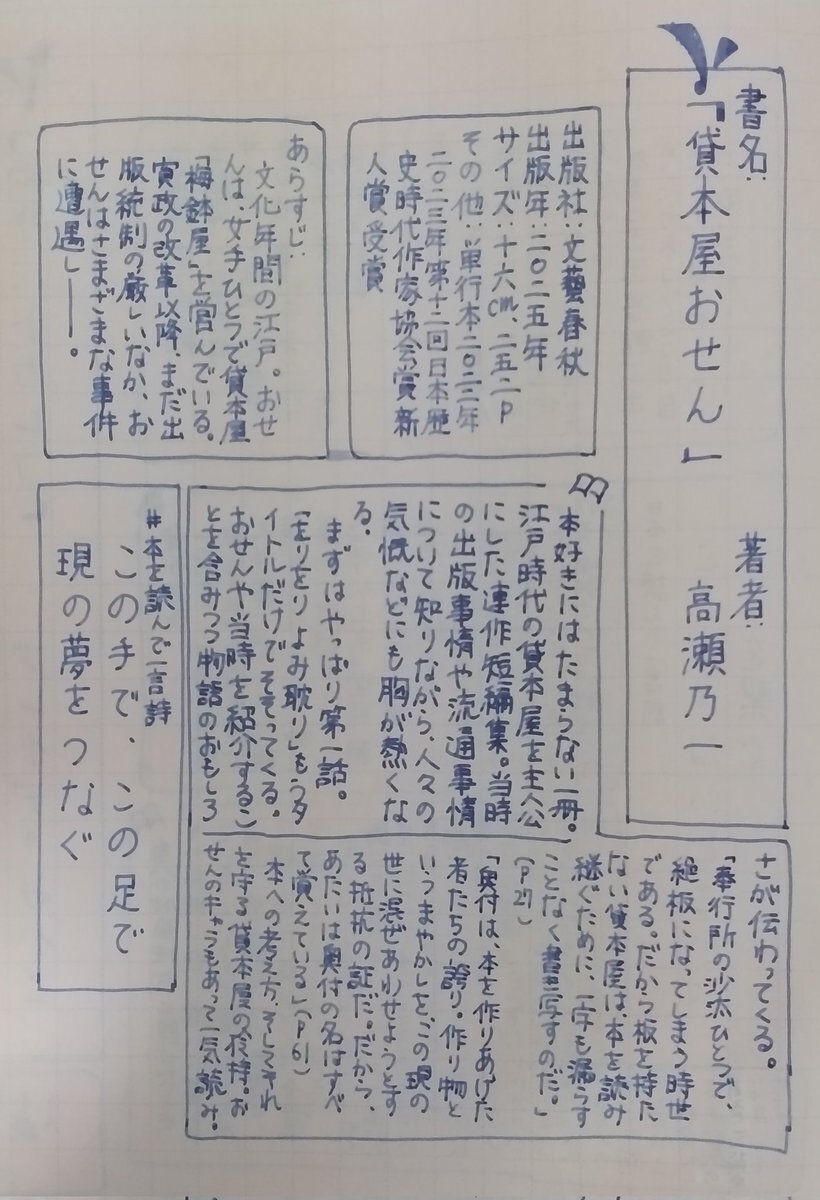 書名:
『貸本屋おせん』
著者:
高瀬乃一
出版社:文藝春秋
出版年:二〇二五年
サイズ:十六cm、二五二P
その他:単行本二〇二二年
二〇二三年第十二回日本歴
史時代作家協会賞新
人賞受賞
あらすじ:
文化年間の江戸。おせ
んは、女手ひとつで貸本屋
「梅鉢屋」を営んでいる。
寛政の改革以降、まだ出
版統制の厳しいなか、お
せんはさまざまな事件
に遭遇し――。
本好きにはたまらない一冊。
江戸時代の貸本屋を主人公
にした連作短編集。当時
の出版事情や流通事情
について知りながら、人々の
気慨などにも胸が熱くな
る。
まずはやっぱり第一話。
「をりをりよみ耽り」もうタ
イトルだけでそそってくる。
おせんや当時を紹介するこ
とを含みつつ物語のおもしろ
さが伝わってくる。
「奉行所の沙汰ひとつで、
絶板になってしまう時世
である。だから板を持た
ない貸本屋は、本を読み
継ぐために、一字も漏らす
ことなく書き写すのだ。」
(P27)
「奥付は、本を作りあげた
者たちの誇り。作り物と
いつまやかしを、この現の
世に混ぜあわせようとす
る抵抗の証だ。だから、
あたいは奥付の名はすべ
て覚えている」(P61)
本への考え方、そしてそれ
を守る貸本屋の矜持。お
せんのキャラもあって一気読み。
#本を読んで一言詩
この手で、この足で
現の夢をつなぐ